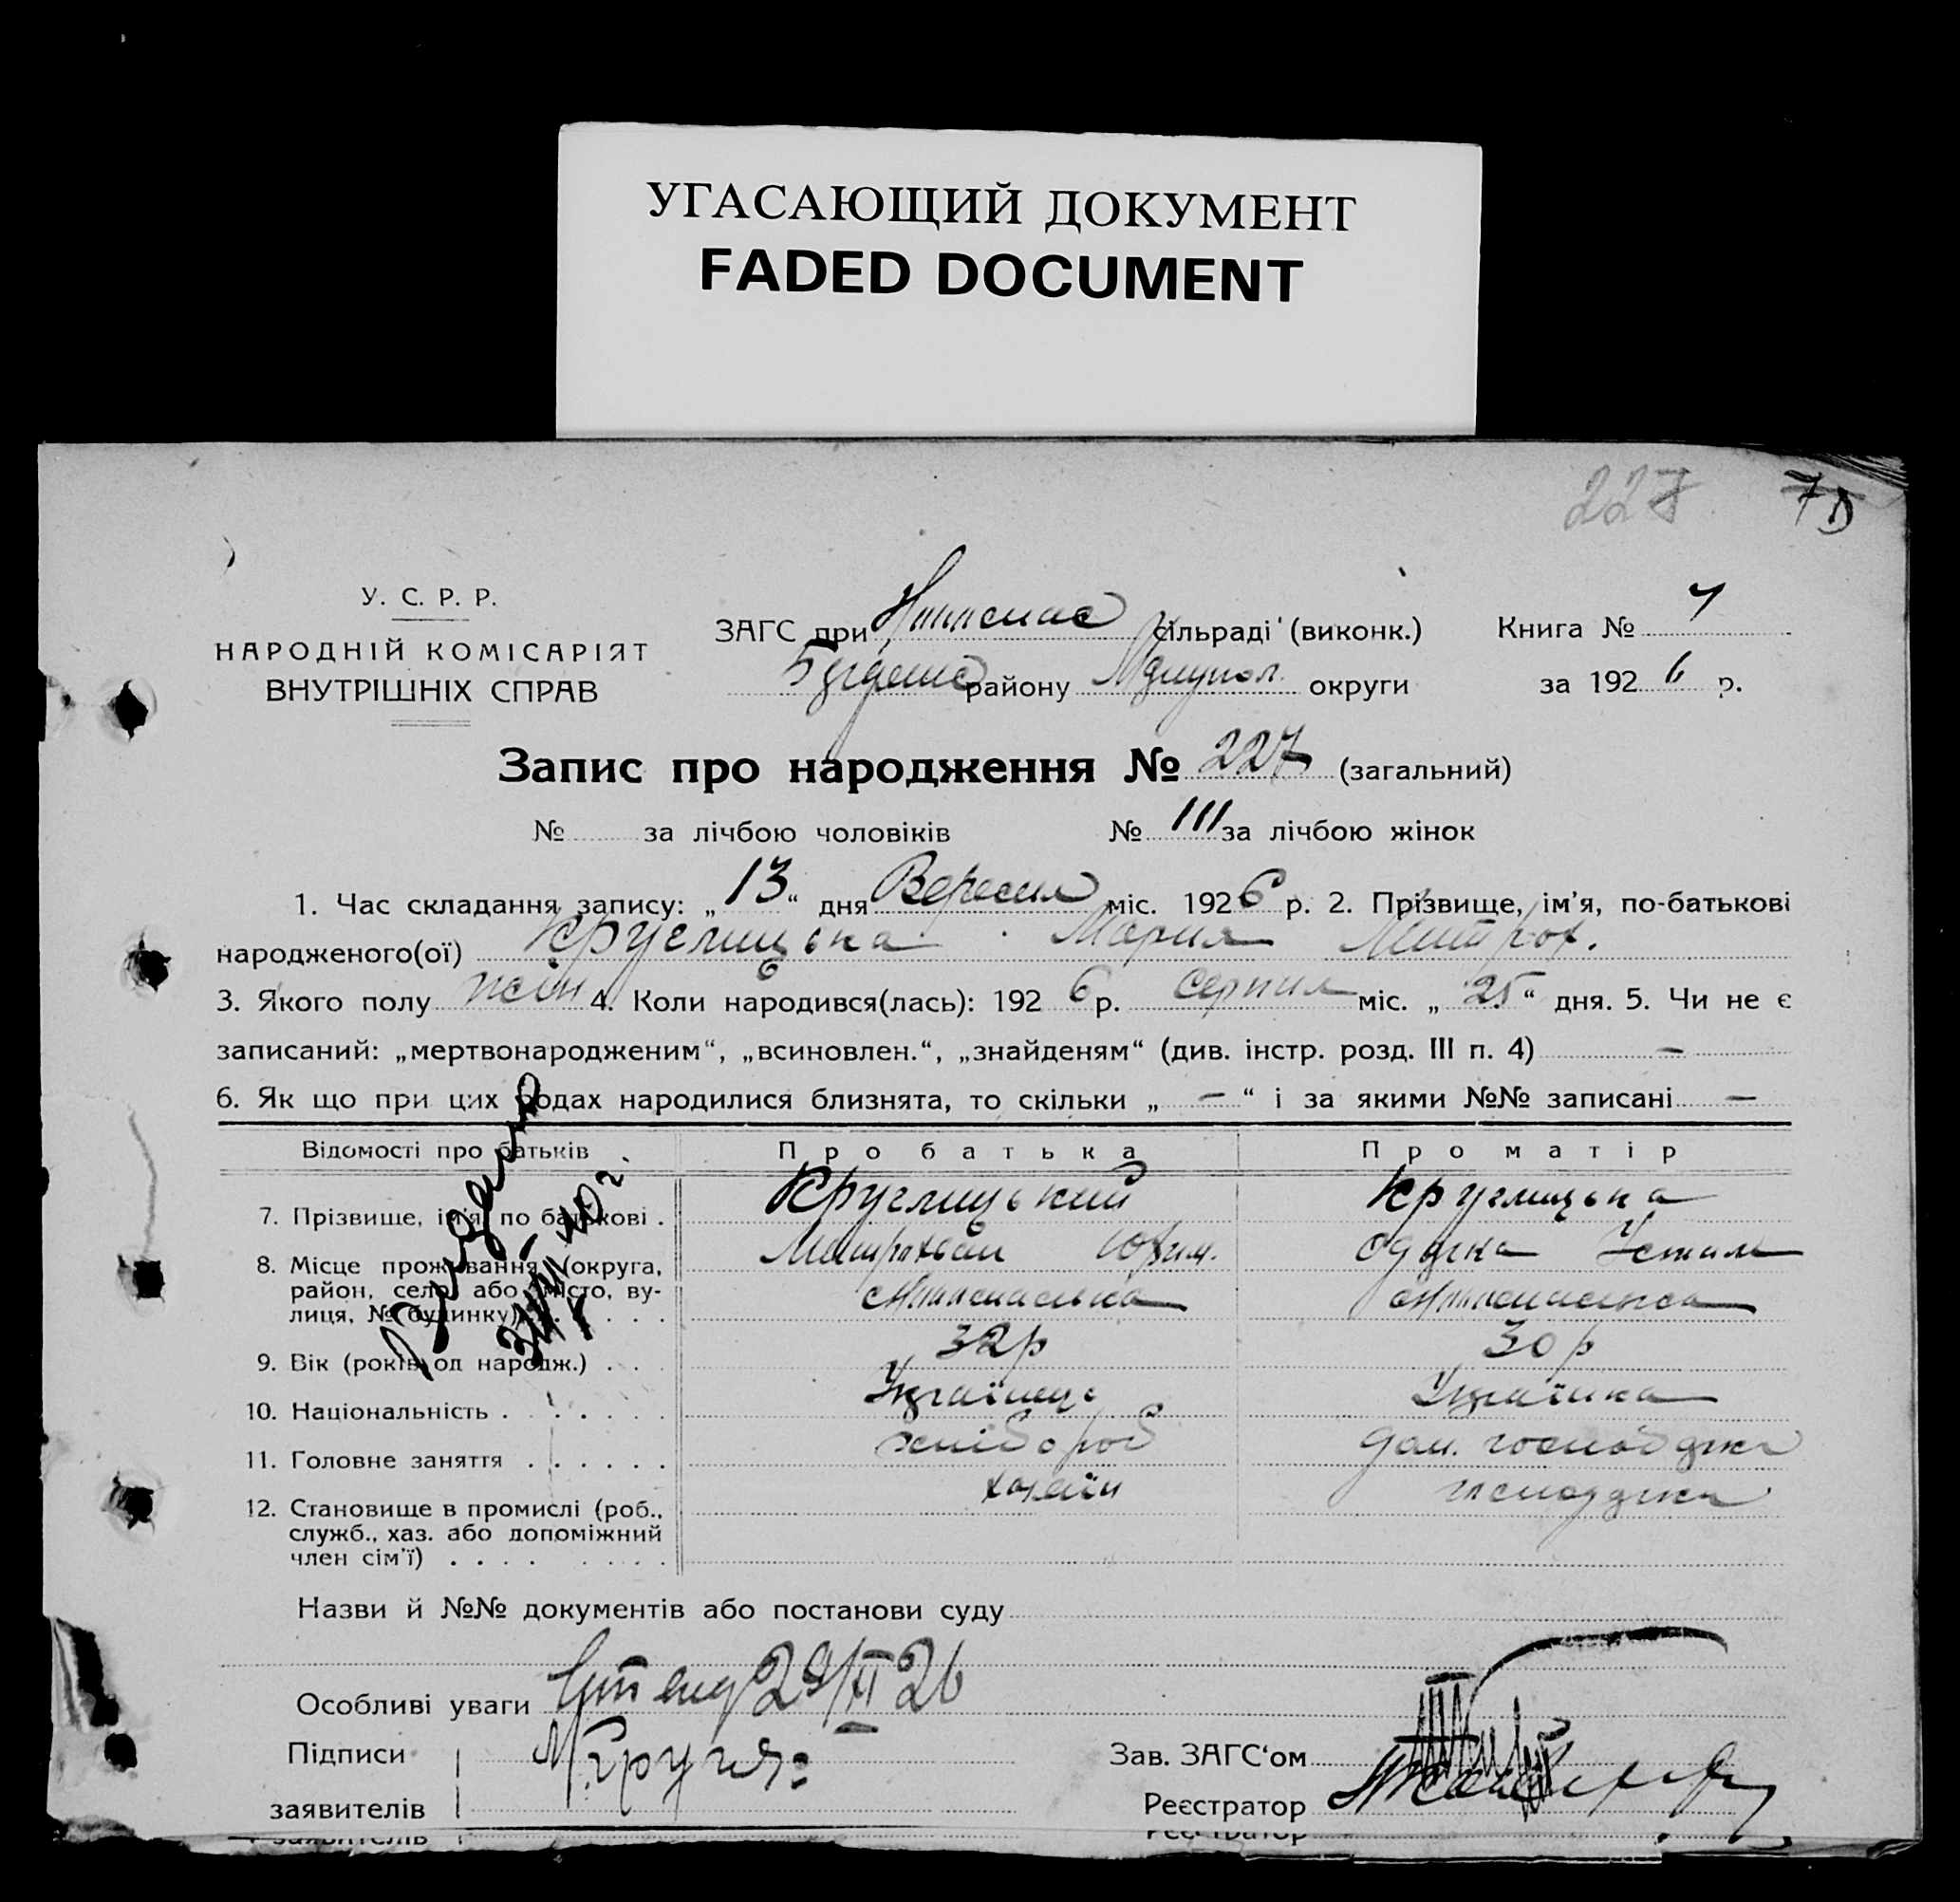 УГАСАЮЩИЙ ДОКУМЕНТ
FADED DOCUMENT
227
У. С. Р. Р.
НАРОДНІЙ КОМІСАРІЯТ
ВНУТРІШНІХ СПРАВ
ЗАГС при сільраді (виконк.)
району округи
Книга №
за 1926 р.
Запис про народження № 227 (загальний)
№ за лічбою чоловіків № 111 за лічбою жінок
1. Час складання запису: „13“ дня Вересня міс. 1926 р. 2. Прізвище, ім'я, по-батькові
народженого(ої) Круглицька Мария Митроф.
3. Якого полу жін 4. Коли народився(лась): 1926 р. Серпня міс. „25“ дня. 5. Чи не є
записаний: „мертвонародженим“, „всиновлен.“, „знайденям“ (див. інстр. розд. III п. 4) —
6. Як що при цих родах народилися близнята, то скільки „—“ і за якими №№ записані —
Відомості про батьків Про батька Про матір
7. Прізвище, ім'я, по батькові . Круглицький Круглицька
8. Місце проживання (округа,
район, село або місто, ву-
лиця, № будинку)
9. Вік (років од народж.) . . . 32р 30р
10. Національність . . . . . . Українець Українка
11. Головне заняття . . . . . . хлібороб дом.
12. Становище в промислі (роб.,
служб., хаз. або допоміжний
член сім'ї) . . . . . . . .
хазяїн
Назви й №№ документів або постанови суду
Особливі уваги
Підписи
заявителів
Зав. ЗАГС‘ом
Реєстратор
заявителів
Реєстратор